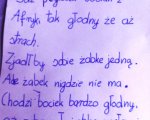 Afryki tak głodny że aż
strach.
Zjadł by sobie żabkę jedną.
Ale żabek nigdzie nie ma.
Chodzi bociek bardzo głodny.